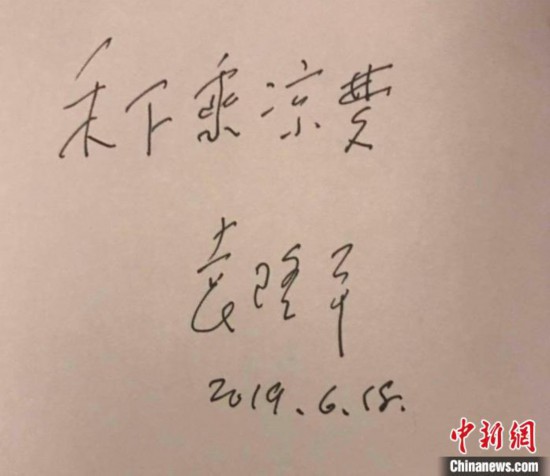 禾下乘凉夢
袁隆平
2019.6.18.
中新網
Chinanews.com